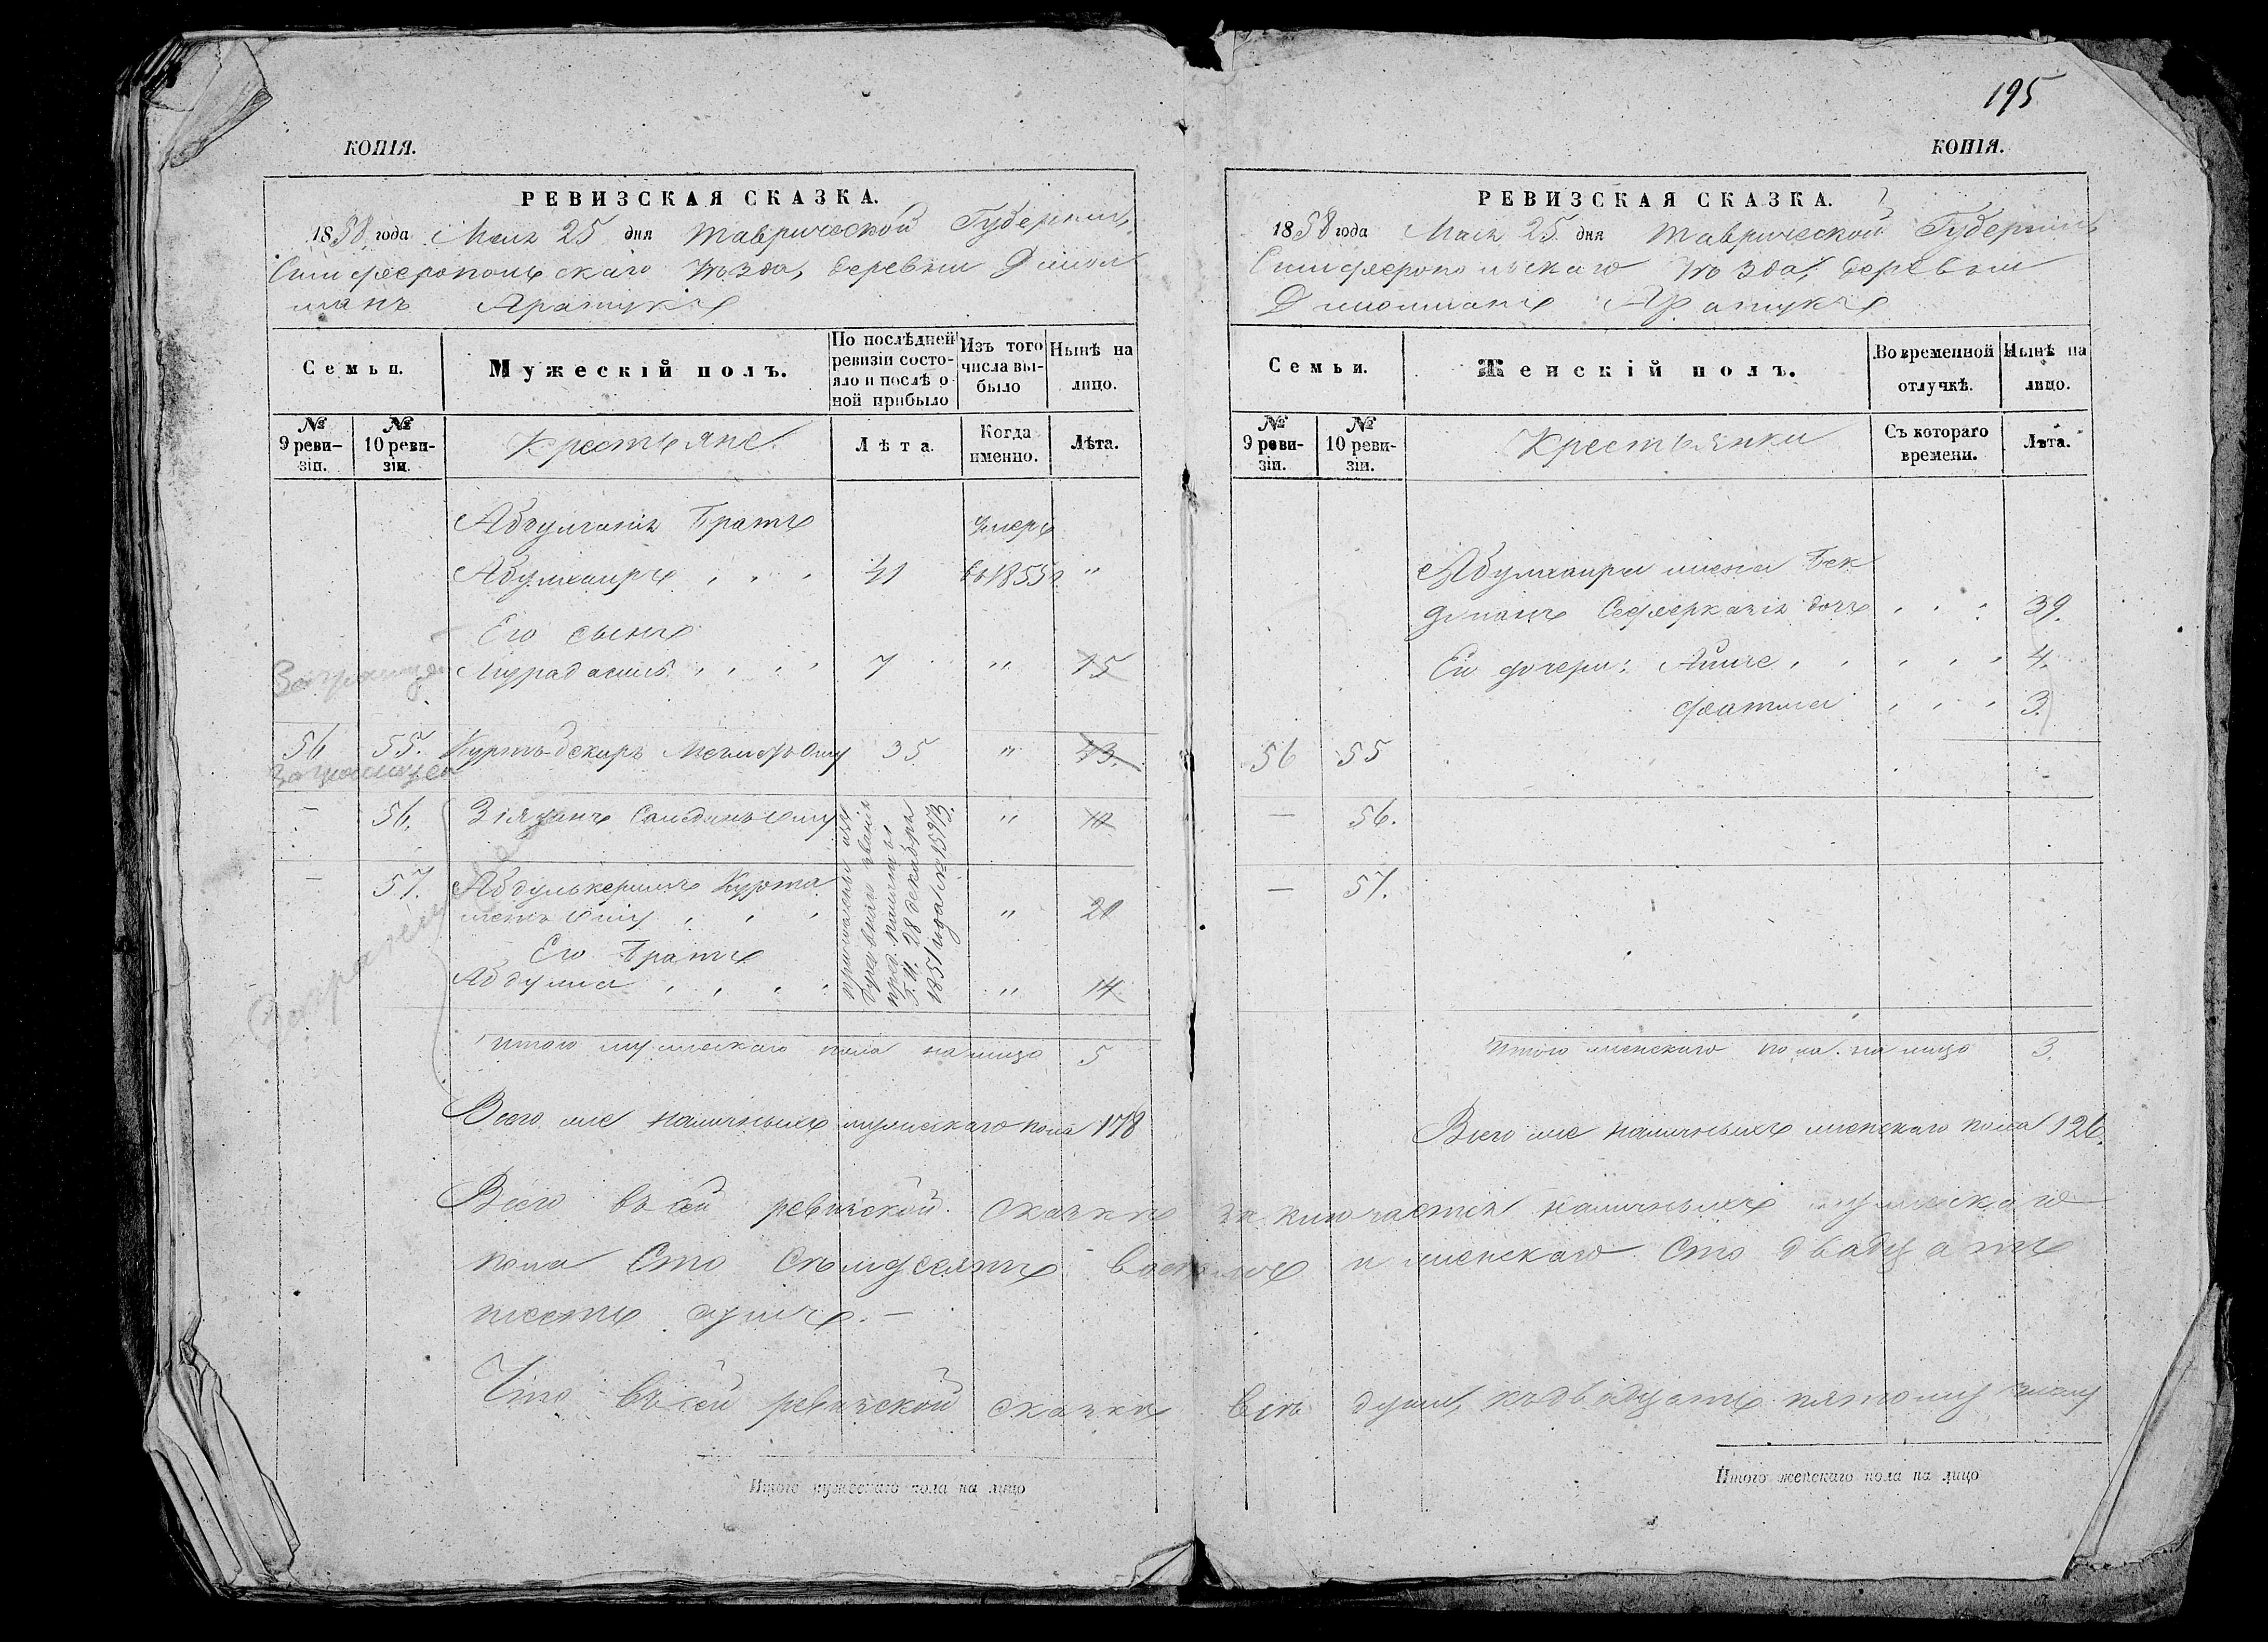 КОПІЯ.
РЕВИЗСКАЯ СКАЗКА.
1858 года Мая 25 дня Таврической Губерніи,
Симферопольскаго Уѣзда, деревни Джол
манъ Аратукъ
Семьи.
Мужескій полъ.
По послѣдней ревизіи состояло и послѣ оной прибыло
Изъ того числа выбыло
Нынѣ на лицо.
№ 9 ревизіи.
№ 10 ревизіи.
Крестьяне
Лѣта.
Когда именно.
Лѣта.
Абдулганія Братъ умеръ
Абулхаиръ 41 въ 1855 г. "
Его сынъ
Мурадасилъ 7 " 15
Заграницею
56 55. Куртъ-Бекиръ Мемеѣтъ Оглу 35 " 43.
Заграницею
- 56. Зіядинъ Саидинъ Оглу " 10
- 57. Абдулькеримъ Курта
метъ Оглу " 20
Его Братъ
Абдулла " 14.
Заграницею
28 декабря
1851 года № 15973.
Итого мужескаго пола на лицо 5
Всего же наличныхъ мужескаго пола 178
195
КОПІЯ.
РЕВИЗСКАЯ СКАЗКА.
1858 года Мая 25 дня Таврической Губерніи,
Симферопольскаго Уѣзда, деревни
Джолманъ Аратукъ
Семьи.
Женскій полъ.
Во временной отлучкѣ.
Нынѣ на лицо.
№ 9 ревизіи.
№ 10 ревизіи.
Крестьянки
Съ котораго времени.
Лѣта.
Абулхаира жена Бек
Сеферказія дочь 39.
Ея дочери: Айше 4.
Фатма 3.
56 55
- 56.
- 57.
Итого женскаго пола на лицо 3.
Всего же наличныхъ женскаго пола 126.
Всего въ сей ревизской сказкѣ заключается наличныхъ мужескаго
пола Сто Семьдесятъ восемь и женскаго Сто двадцать
шесть душъ. —
Что въ сей ревизской сказкѣ всѣ души, къ двадцать пятому
Итого мужескаго пола на лицо
Итого женскаго пола на лицо